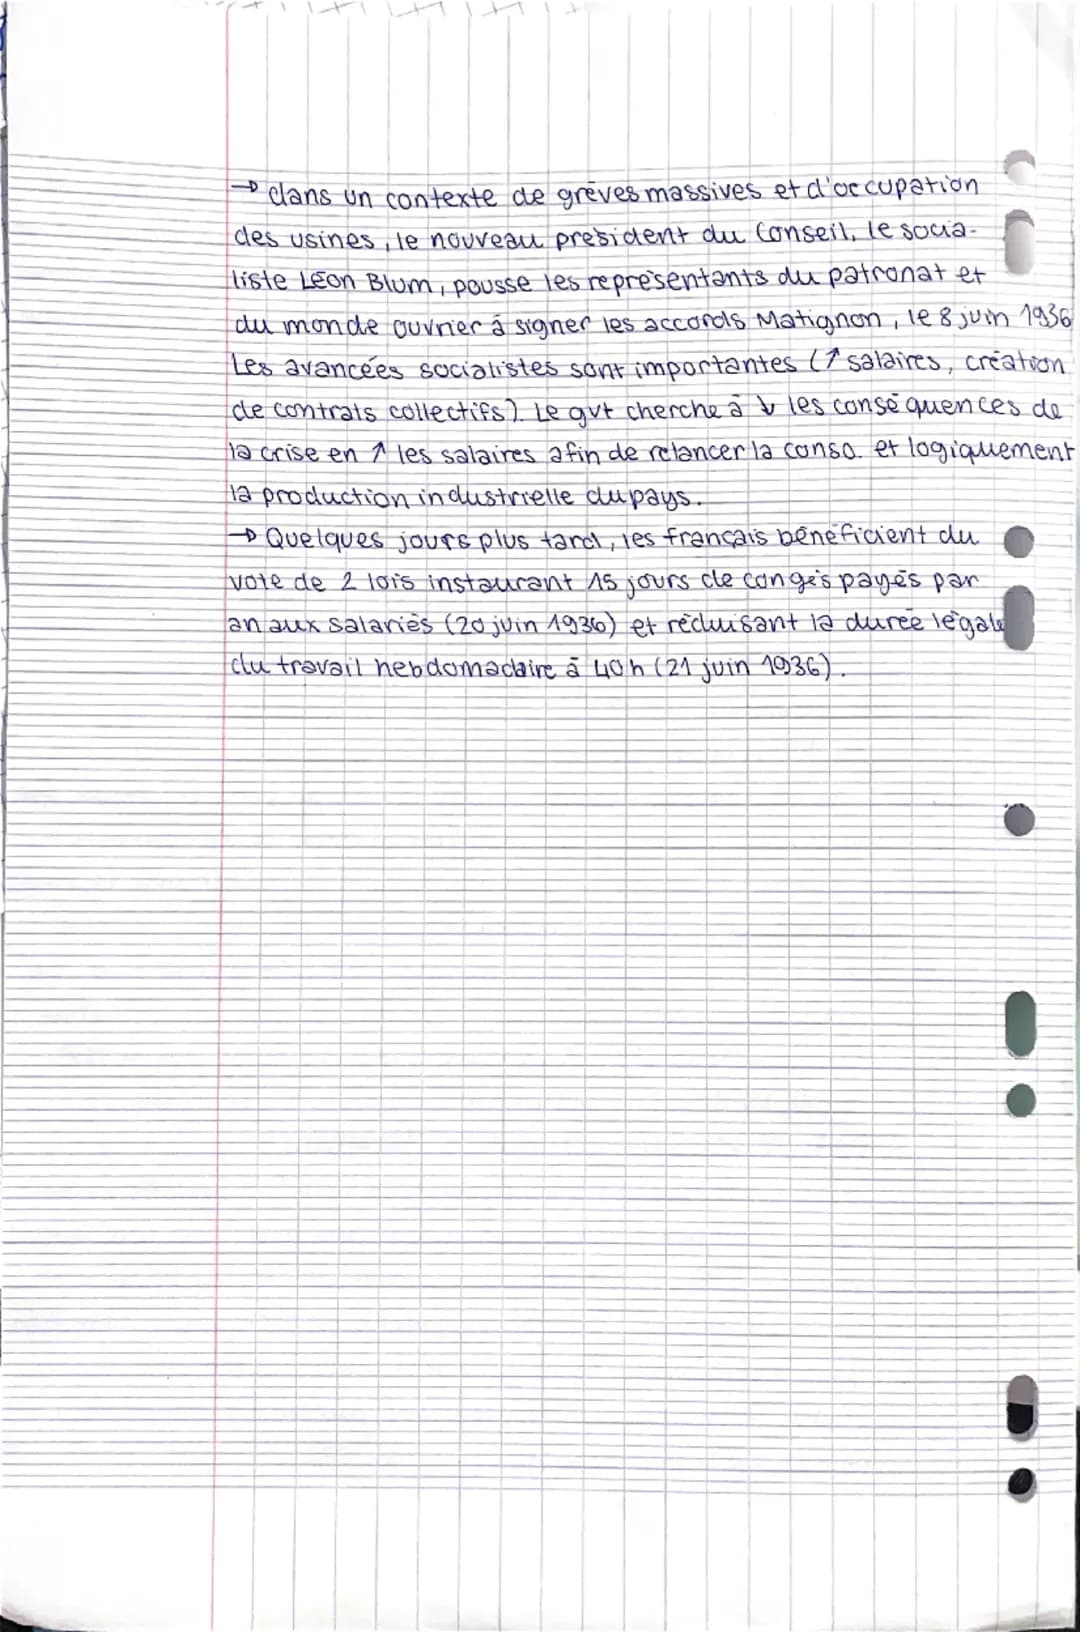 → dans un contexte de grèves massives et d'occupation
des usines, le nouveau président du Conseil, le socia-
liste Léon Blum, pousse les représentants du patronat et
du monde ouvrier à signer les accords Matignon, le 8 juin 1936
Les avancées socialistes sont importantes (↑ salaires, création
de contrats collectifs). Le gvt cherche à ↓ les conséquences de
la crise en ↑ les salaires afin de relancer la conso. et logiquement
la production industrielle du pays.
→ Quelques jours plus tard, les français bénéficient du
vote de 2 lois instaurant 15 jours de congés payés par
an aux salariés (20 juin 1936) et réduisant la durée légale
du travail hebdomadaire à 40h (21 juin 1936).